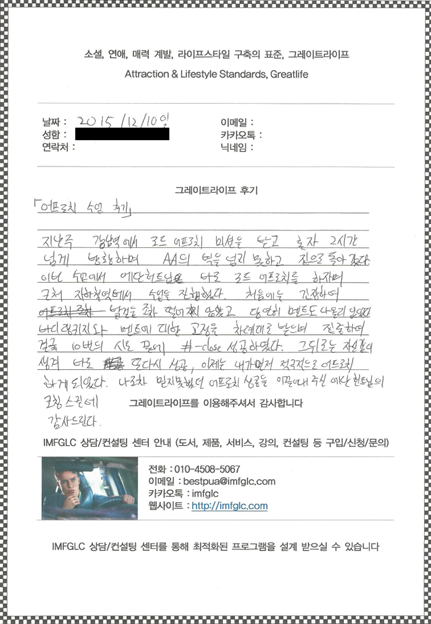 소셜, 연애, 매력 계발, 라이프스타일 구축의 표준, 그레이트라이프
Attraction & Lifestyle Standards, Greatlife
날짜 : 2015/12/10일
이메일 :
성함 :
카카오톡 :
연락처 :
닉네임 :
그레이트라이프 후기
「어프로치 수업 후기」
지난주 강남역에서 로드 어프로치 미션을 받고 혼자 2시간
넘게 방황하며 AA의 벽을 넘지 못하고 집으로 돌아 왔다
이번 수업에서 에단헌트님 나로 로드 어프로치를 하자며
근처 지하철역에서 수업을 진행했다. 처음에는 긴장하여
발걸음 조차 떨어지지 않았고 당연히 멘트도 나오지 않았다
바디랭귀지와 멘트에 대한 교정을 차례대로 받으며 진행하여
결국 10번의 시도 끝에 #-close 성공하였다. 그 뒤로는 자신감이
생겨 바로 또다시 성공, 이제는 내가 먼저 적극적으로 어프로치
하게 되었다. 나조차 믿지 못했던 어프로치 성공을 이끌어내 주신 에단 헌트님의
코칭 스킬에
그레이트라이프를 이용해주셔서 감사합니다
감사드린다.
IMFGLC 상담/컨설팅 센터 안내 (도서, 제품, 서비스, 강의, 컨설팅 등 구입/신청/문의)
전화 : 010-4508-5067
이메일 : bestpua@imfglc.com
카카오톡 : imfglc
웹사이트 : http://imfglc.com
IMFGLC 상담/컨설팅 센터를 통해 최적화된 프로그램을 설계 받으실 수 있습니다